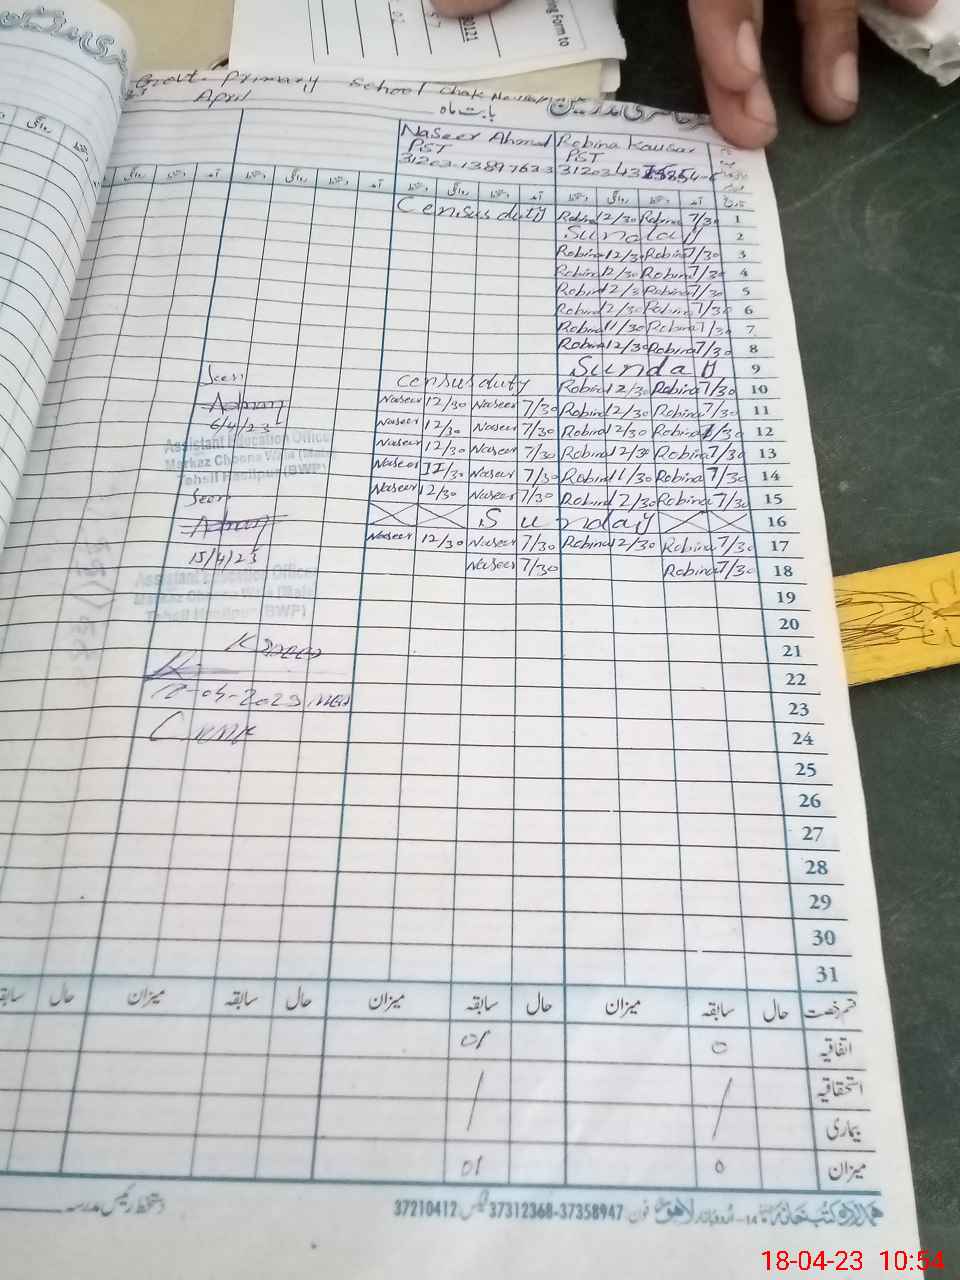 Govt. Primary School Chak
April
بابت ماہ
Naseer Ahmad Robina Kausar
PST PST
Census duty Robina 12/30 Robina 7/30 1
Sunday 2
Robina 12/30 Robina 7/30 3
Robina 12/30 Robina 7/30 4
Robina 12/3 Robina 7/30 5
Robina 12/30 Robina 7/30 6
Robina 11/30 Robina 7/30 7
Robina 12/30 Robina 7/30 8
Sunday 9
Seen Census duty Robina 12/30 Robina 7/30 10
Adnan Naseer 12/30 Naseer 7/30 Robina 12/30 Robina 7/30 11
6/4/23 Naseer 12/30 Naseer 7/30 Robina 12/30 Robina 7/30 12
Assistant Education Officer Naseer 12/30 Naseer 7/30 Robina 12/30 Robina 7/30 13
Naseer 11/30 Naseer 7/30 Robina 11/30 Robina 7/30 14
Seen Naseer 12/30 Naseer 7/30 Robina 12/30 Robina 7/30 15
Adnan Sunday 16
15/4/23 Naseer 12/30 Naseer 7/30 Robina 12/30 Robina 7/30 17
Assistant Education Officer Naseer 7/30 Robina 7/30 18
19
20
21
22
23
24
25
26
27
28
29
30
31
قسم رخصت حال سابقہ میزان حال سابقہ میزان حال سابقہ میزان حال
اتفاقیہ 0 01
استحقاقیہ / /
بیماری
میزان 0 01
فون 37312368-37358947 فیکس 37210412
دستخط رئیس مدرسہ
18-04-23 10:54